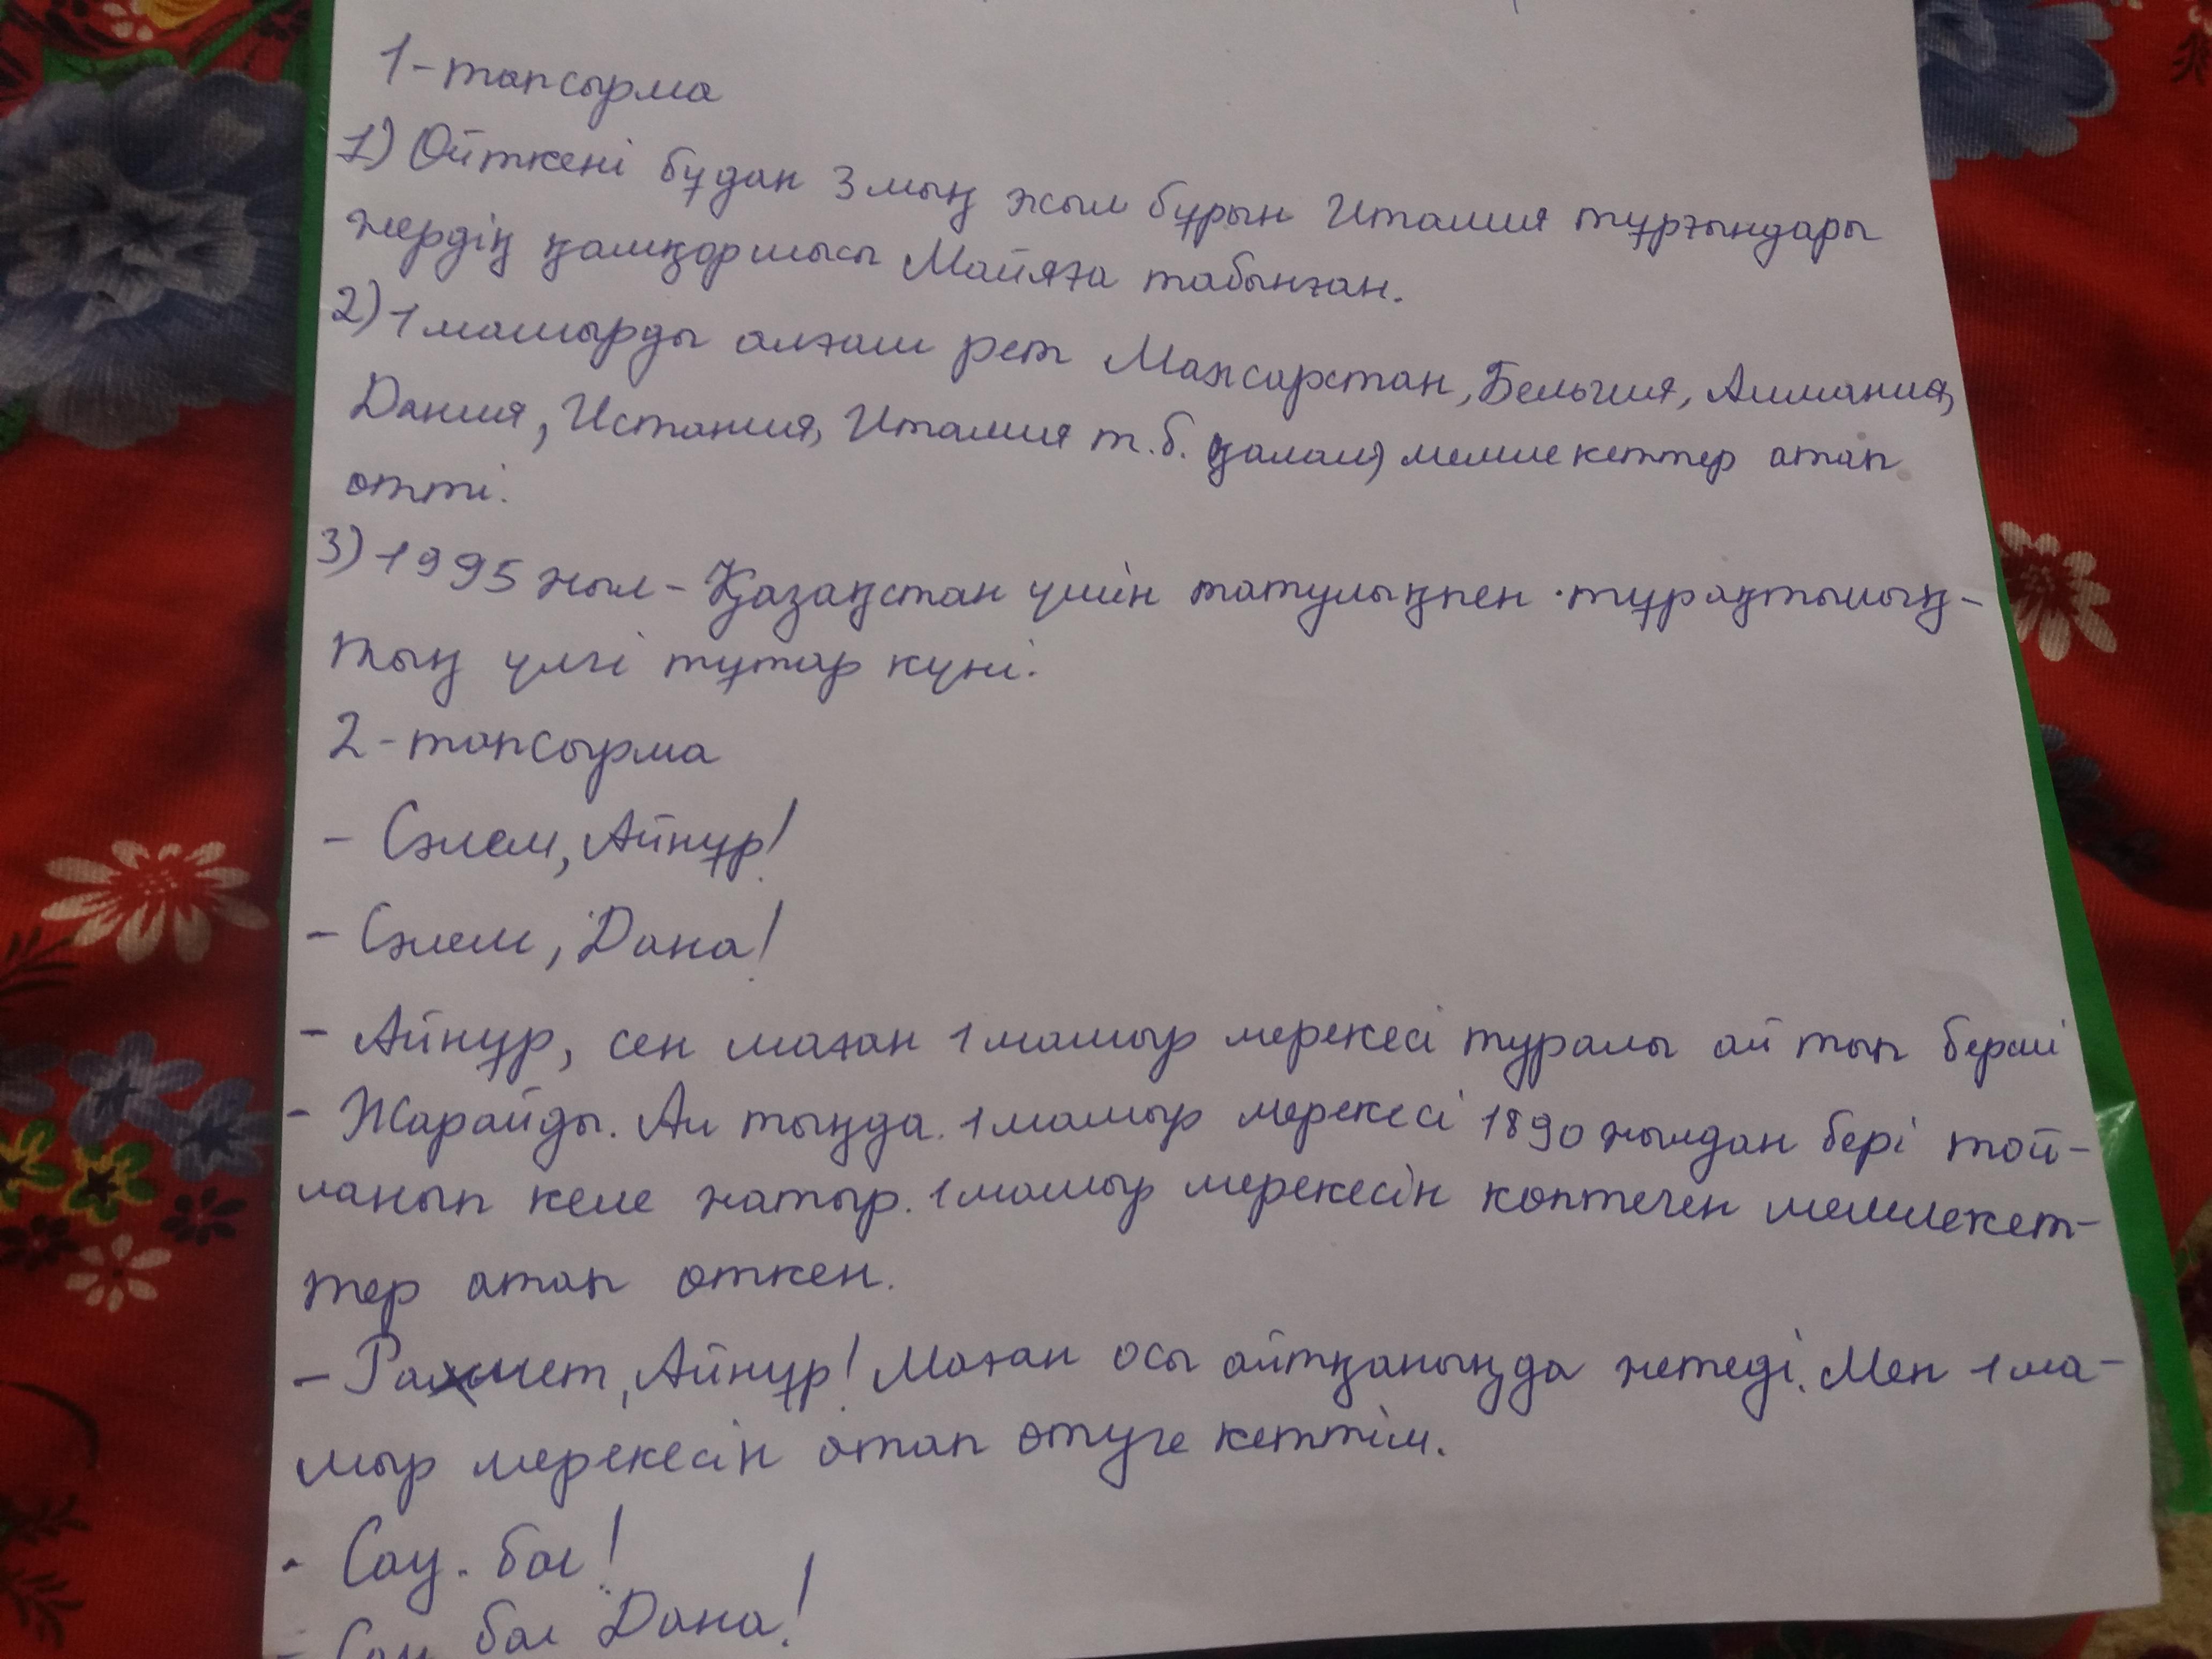 1-тапсырма
1) Өйткені бұдан 3 мың жыл бұрын Италия тұрғындары
жердің қамқоршысы Майяға табынған.
2) 1 мамырды алғаш рет Мажарстан, Бельгия, Алмания,
Дания, Испания, Италия т.б. қалалар, мемлекеттер атап
өтті.
3) 1995 жыл - Қазақстан үшін татулықпен тұрақтылық-
тың үлгі тұтар күні.
2-тапсырма
- Сәлем, Айнұр!
- Сәлем, Дана!
- Айнұр, сен маған 1 мамыр мерекесі туралы айтып берші
- Жарайды. Ал тыңда. 1 мамыр мерекесі 1890 жылдан бері той-
ланып келе жатыр. 1 мамыр мерекесін көптеген мемлекет-
тер атап өткен.
- Рахмет, Айнұр! Маған осы айтқаныңда жетеді. Мен 1 ма-
мыр мерекесін атап өтуге кеттім.
- Сау бол!
- Сау бол Дана!